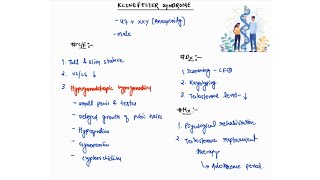 KLINEFELTER SYNDROME
- 47 + XXY (Aneuploidy)
- male
# C/F :-
1. Tall & slim stature
2. US/LS ↓
3. Hypergonadotropic hypogonadism
- small penis & testes
- Delayed growth of pubic hairs
- Hypospadias
- Gynecomastia
- cryptorchidism
# Dx :-
1. Screening -
2. Karyotyping
3. Testosterone level - ↓
# Mx :-
1. Psychological rehabilitation
2. Testosterone replacement
therapy
↳ Adolescence period.